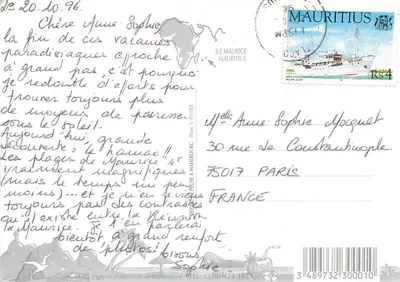 Le 20.10.96.
Chère Anne-Sophie
la fin de ces vacances
paradisiaques approche
à grand pas, c'est pourquoi
je redouble d'efforts pour
trouver toujours plus
de moyens de paresser
sous le soleil.
Aujourd'hui, grande
découverte = "le hamac"!!
Les plages de Maurice st
vraiment magnifiques
(mais le temps un peu
moins)... et je n'en reviens
toujours pas des contrastes
qu'il existe entre la Réunion
la Maurice. Je t'en parlerai
bientôt à grand renfort
de photos! bisous.
Sophie
ILE MAURICE
MAURITIUS
MAURITIUS
Rs4
Melle Anne-Sophie Macquet
30 rue de Constantinople
75017 PARIS
FRANCE
3 489732 300010